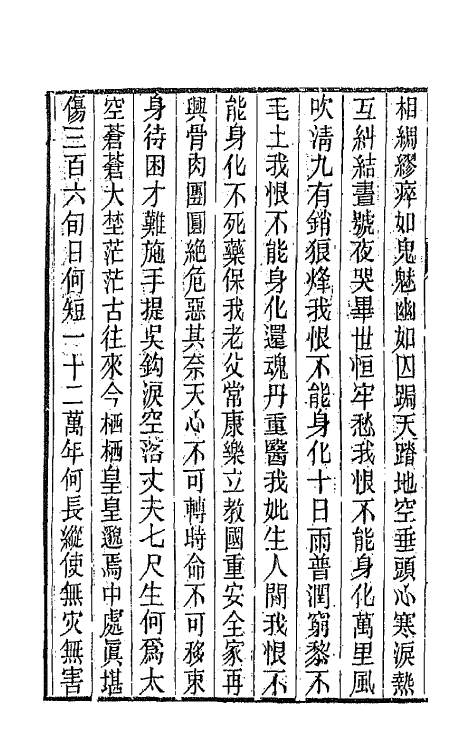 相綢繆瘁如鬼魅幽如囚跼天踏地空垂頭心寒淚熱
互糾結晝號夜哭畢世恒牢愁我恨不能身化萬里風
吹淸九有銷狼烽我恨不能身化十日雨普潤窮黎不
毛土我恨不能身化還魂丹重醫我妣生人間我恨不
能身化不死藥保我老父常康樂立教國重安全家再
興骨肉團圓絶危惡其奈天心不可轉時命不可移束
身待困才難施手提吳鈎淚空落丈夫七尺生何爲太
空蒼蒼大埜茫茫古往來今栖栖皇皇邈焉中處眞堪
傷三百六旬日何短一十二萬年何長縱使無灾無害